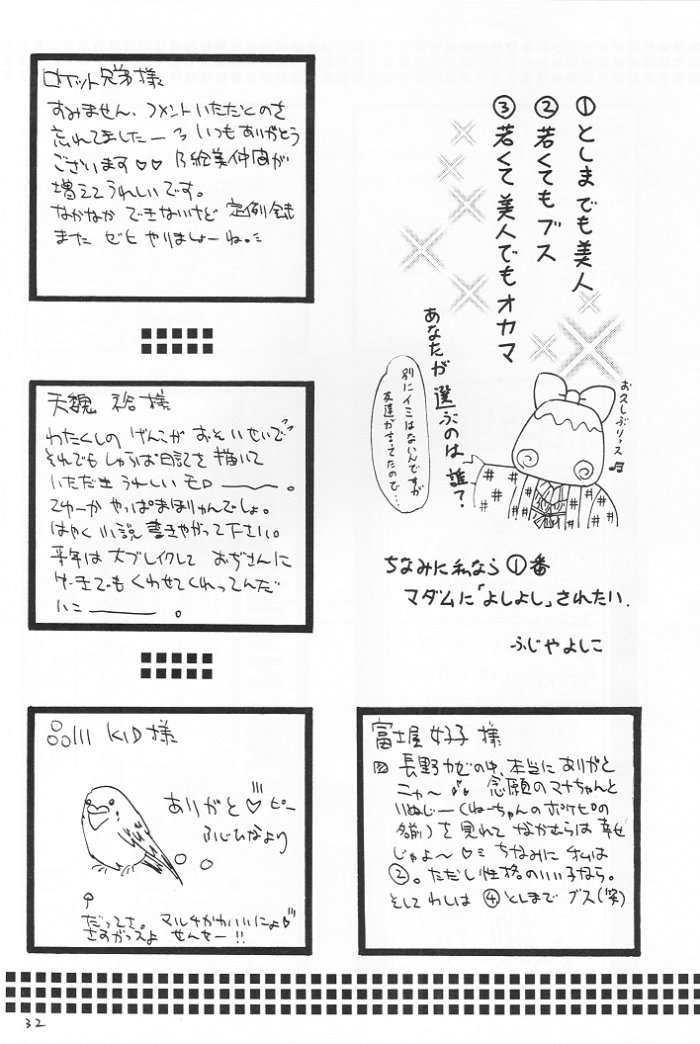 ロケット兄弟様
すみません、コメントいただくのを
忘れてましたー いつもありがとう
ございます♡♡ 乃絵美仲間が
増えてうれしいです。
なかなか できないけど 定例会
また ゼヒ やりましょーね。
天魂 裕様
わたくしの げんこが おそいせいで
それでも しゅらば日記を描いて
いただき うれしいモロ ―――。
てゆーか やっぱまほりゅんでしょ。
はやく 小説 書きやがって下さい。
来年は大ブレイクして おぢさんに
ケーキでも くわせてくれってんだ
い ―――。
品川 KID様
ありがと♡ピー
ふじひなより
だってさ。 マルチかわいいにょ
さすがっスよ せんせー!!
①としまでも美人
②若くてもブス
③若くて美人でもオカマ
あなたが選ぶのは誰?
別にイミはないんですが
友達が言ってたので…
お久しぶりっス♫
ちなみに私なら①番
マダムに「よしよし」されたい.
ふじやよしこ
富士屋 好子 様
長野カゼの中、本当に ありがと
ニャ〜 念願のマナちゃんと
いぬじー(ねーちゃんのポケピの
名前)を 見れて なかむらは 幸せ
じゃよ〜♡ ちなみに オレは
②。ただし性格のいい子なら。
そして わしは ④としまで ブス(笑)
32